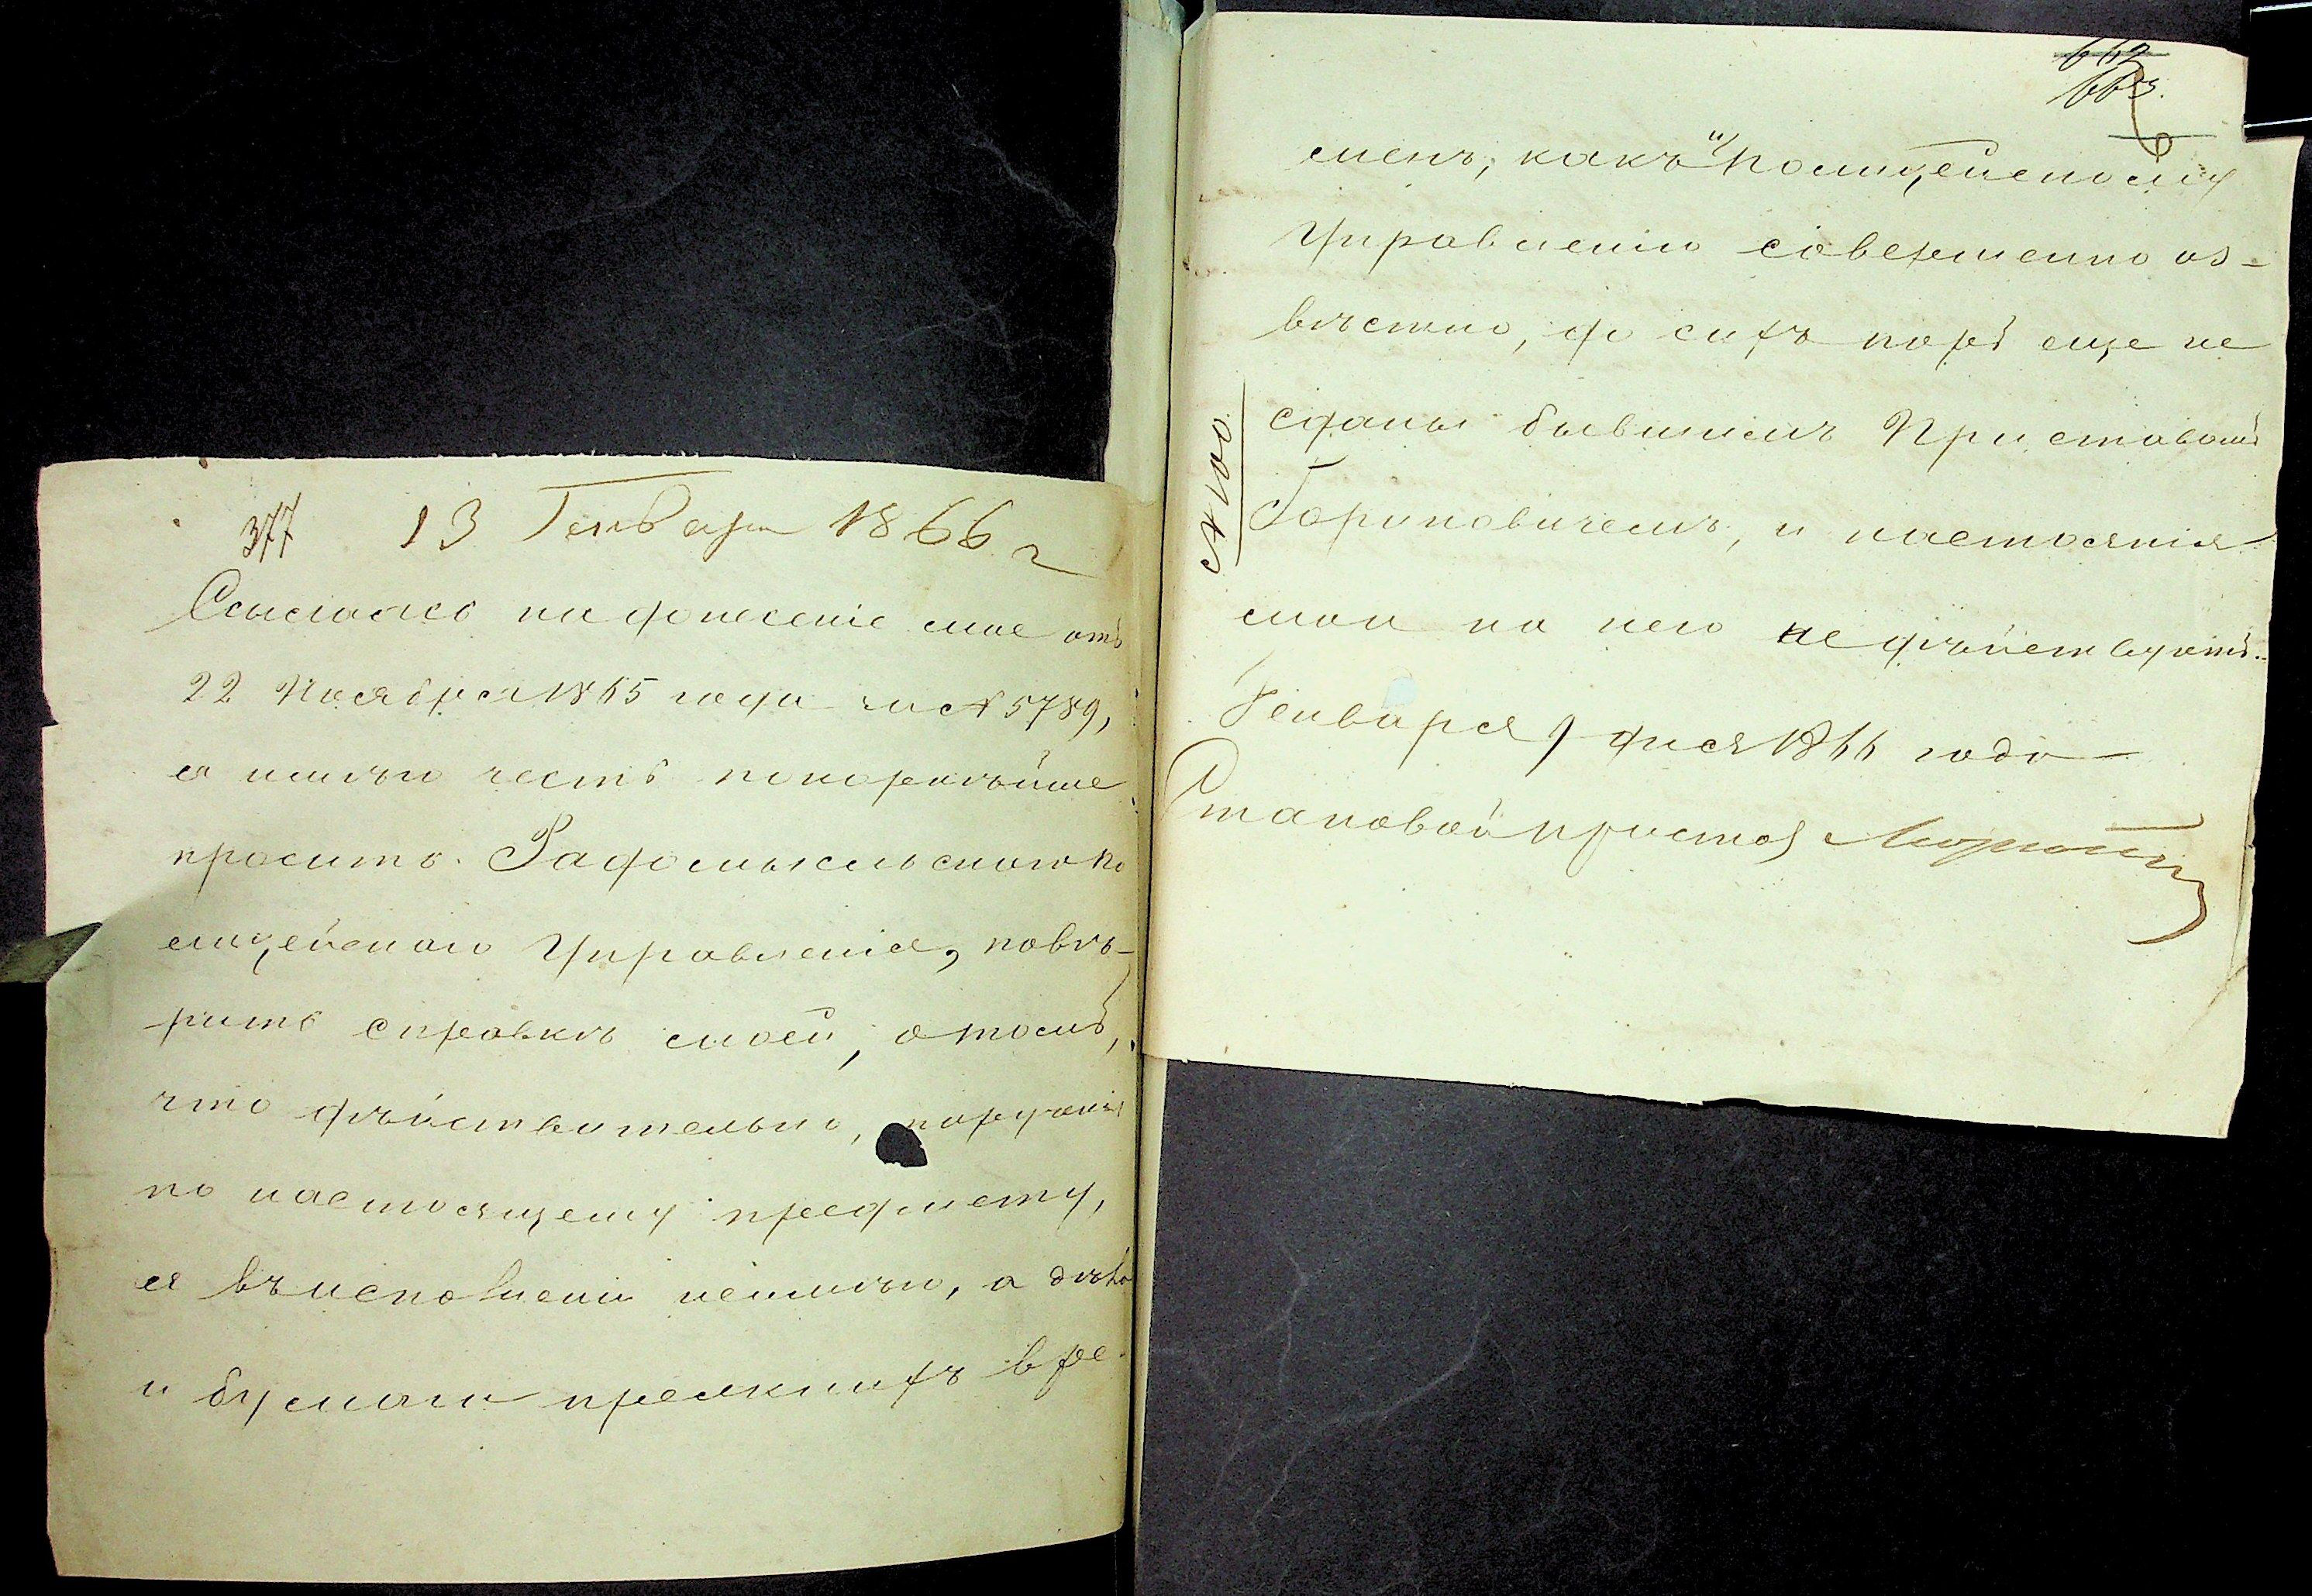 377 13 Генваря 1866 г
Ссылаясь на донесеніе мое отъ
22 Ноября 1865 года за № 5789,
я имѣю честь покорнѣйше
просить Радомысльскою по
лицейскаго Управленія, повѣ-
рить справкѣ моей, о томъ,
что дѣйствительно, порученія
по настоящему предмету,
я въ исполненіи неимѣю, а дѣла
и бумаги прежнихъ вре-
662
663.
менъ, какъ и Полицейскому
Управленію совершенно из-
вѣстно, до сихъ поръ еще не
сданы бывшимъ Приставомъ
и настоянія
мои на него не дѣйствуютъ.
Генваря 9 дня 1866 года
Становой приставъ
№ 100.